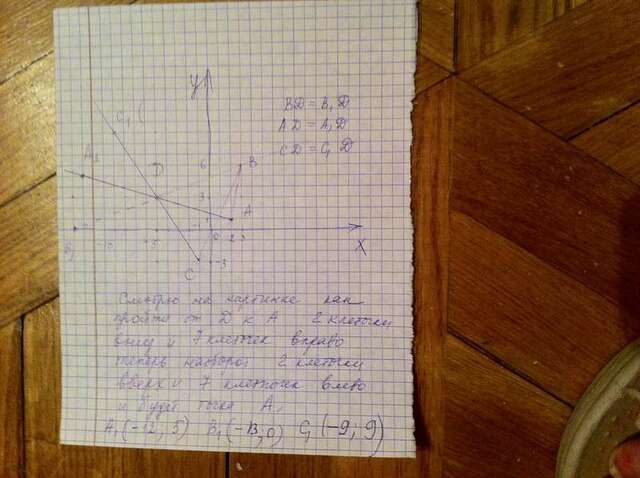 y
C₁ (
BD = B₁D
AD = A₁D
CD = C₁D
A₁
6
B
D
3
A
1
B₁
-10
-5
0
2
x
C
-3
Смотрю на картинке как
пройти от D к A 2 клеточки
вниз и 7 клеток вправо
теперь наоборот 2 клеточки
вверх и 7 клеточек влево
и будет точка A₁
A₁(-12, 5) B₁(-B, 0) C₁(-9; 9)